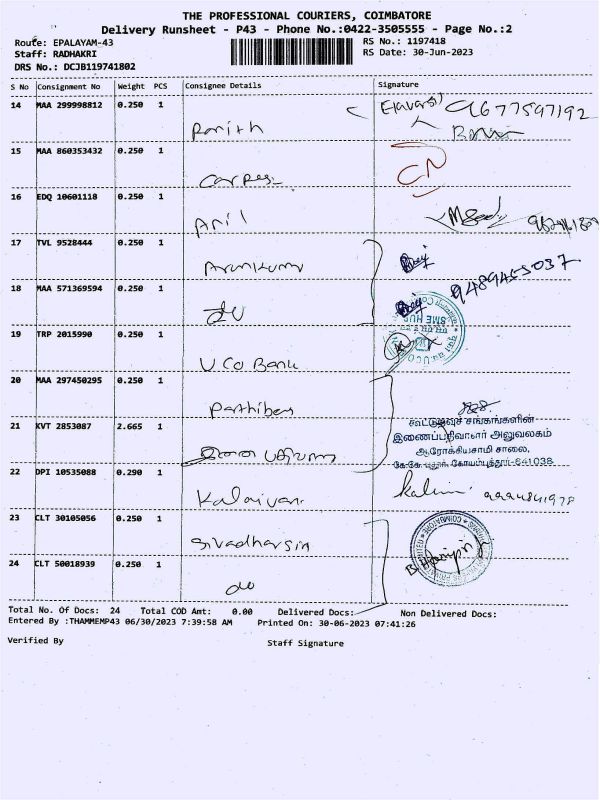 THE PROFESSIONAL COURIERS, COIMBATORE
Delivery Runsheet - P43 - Phone No.:0422-3505555 - Page No.:2
Route: EPALAYAM-43
Staff: RADHAKRI
DRS No.: DCJB119741802
RS No.: 1197418
RS Date: 30-Jun-2023
S No Consignment No Weight PCS Consignee Details Signature
14 MAA 299998812 0.250 1
9677597192
15 MAA 860353432 0.250 1
16 EDQ 10601118 0.250 1 Anil
17 TVL 9528444 0.250 1 Arunkumar
18 MAA 571369594 0.250 1 do 9489455037
19 TRP 2015990 0.250 1 UCO Bank
20 MAA 297450295 0.250 1 Parthiban
21 KVT 2853087 2.665 1
கூட்டுறவுச் சங்கங்களின்
இணைப்பதிவாளர் அலுவலகம்
ஆரோக்கியசாமி சாலை,
கோயம்புத்தூர்-641038
22 DPI 10535088 0.290 1 Kalaivani
23 CLT 30105056 0.250 1 Sivadharsin
24 CLT 50018939 0.250 1 do
Total No. Of Docs: 24 Total COD Amt: 0.00 Delivered Docs: Non Delivered Docs:
Entered By :THAMMEMP43 06/30/2023 7:39:58 AM Printed On: 30-06-2023 07:41:26
Verified By Staff Signature